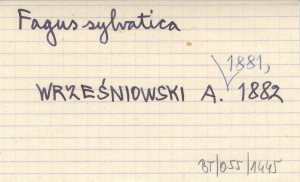 Fagus sylvatica
1881,
WRZEŚNIOWSKI A. 1882
BT/055/1445